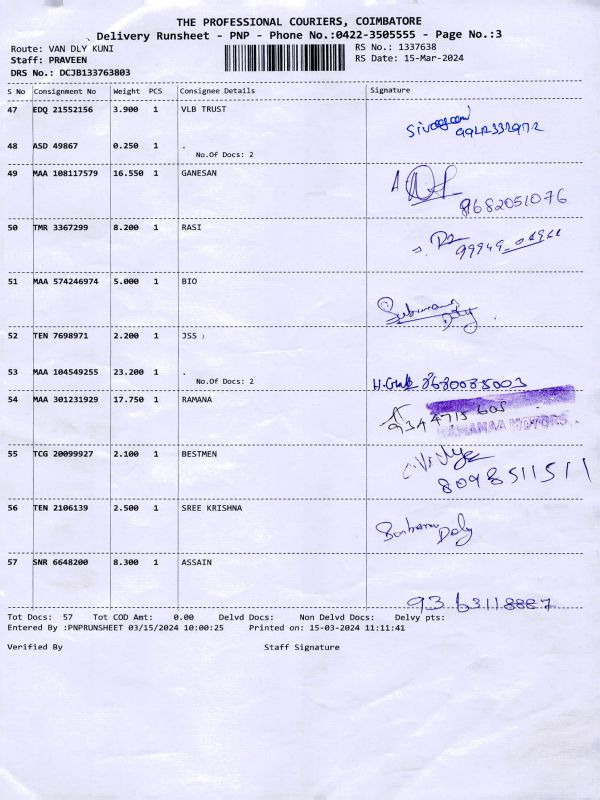 THE PROFESSIONAL COURIERS, COIMBATORE
Delivery Runsheet - PNP - Phone No.:0422-3505555 - Page No.:3
Route: VAN DLY KUNI
RS No.: 1337638
Staff: PRAVEEN
RS Date: 15-Mar-2024
DRS No.: DCJB133763803
S No Consignment No Weight PCS Consignee Details Signature
47 EDQ 21552156 3.900 1 VLB TRUST
48 ASD 49867 0.250 1 .
No.Of Docs: 2
49 MAA 108117579 16.550 1 GANESAN
8682051076
50 TMR 3367299 8.200 1 RASI
51 MAA 574246974 5.000 1 BIO
52 TEN 7698971 2.200 1 JSS ;
53 MAA 104549255 23.200 1 .
No.Of Docs: 2
8680085003
54 MAA 301231929 17.750 1 RAMANA
RAMANAA MOTORS
55 TCG 20099927 2.100 1 BESTMEN
8098511511
56 TEN 2106139 2.500 1 SREE KRISHNA
57 SNR 6648200 8.300 1 ASSAIN
9363118887
Tot Docs: 57 Tot COD Amt: 0.00 Delvd Docs: Non Delvd Docs: Delvy pts:
Entered By :PNPRUNSHEET 03/15/2024 10:00:25 Printed on: 15-03-2024 11:11:41
Verified By Staff Signature